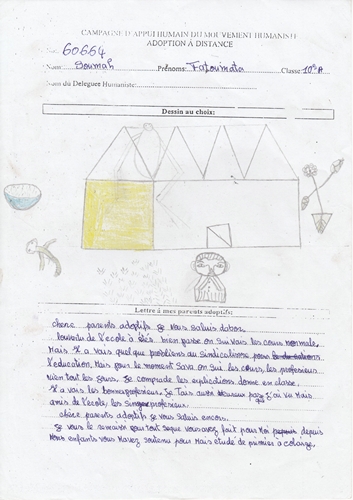 CAMPAGNE D'APPUI HUMAIN DU MOUVEMENT HUMANISTE
ADOPTION À DISTANCE
N° 60664
Nom: Soumah Prénoms: Fatoumata Classe: 10e A
Nom du Déléguée Humaniste:
Dessin au choix:
Lettre à mes parents adoptifs:
chere parents adoptifs Je vous saluis dabor.
louverture de l'ecole à étés bien passe on suivais les cours normale.
Mais il a vais quelque problems au sindicalisse pour
l'education, Mais pour le moment Sava on sui les cours, les profeseurs
vien tout les jours. Je comprade les explications donne en classe.
Il a vais les bonne profeseur. Je Tais aussi heureux parceque J'ai vu Mais
amis de l'ecole, les profeseur.
chere parents adoptifs Je vous saluis encors.
Je vous le remercier pour tout seque vous avez fait pour Moi depuis
Nous enfants vous Navez soutenu pour Mais etude de primier a colarge.